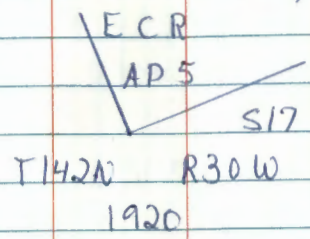 E C R
AP 5
S17
T142N R30W
1920